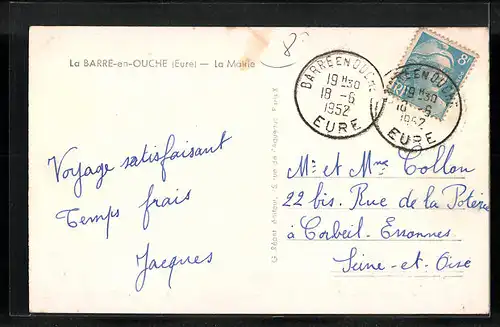 La BARRE-en-OUCHE (Eure) — La Mairie
8
BARRE EN OUCHE
19H30
18-6
1952
EURE
19H30
18-6
1952
EURE
8F
Voyage satisfaisant
Temps frais
Jacques
Mr et Mme Collon
22 bis. Rue de la Poterie
à Corbeil-Essonnes
Seine-et-Oise